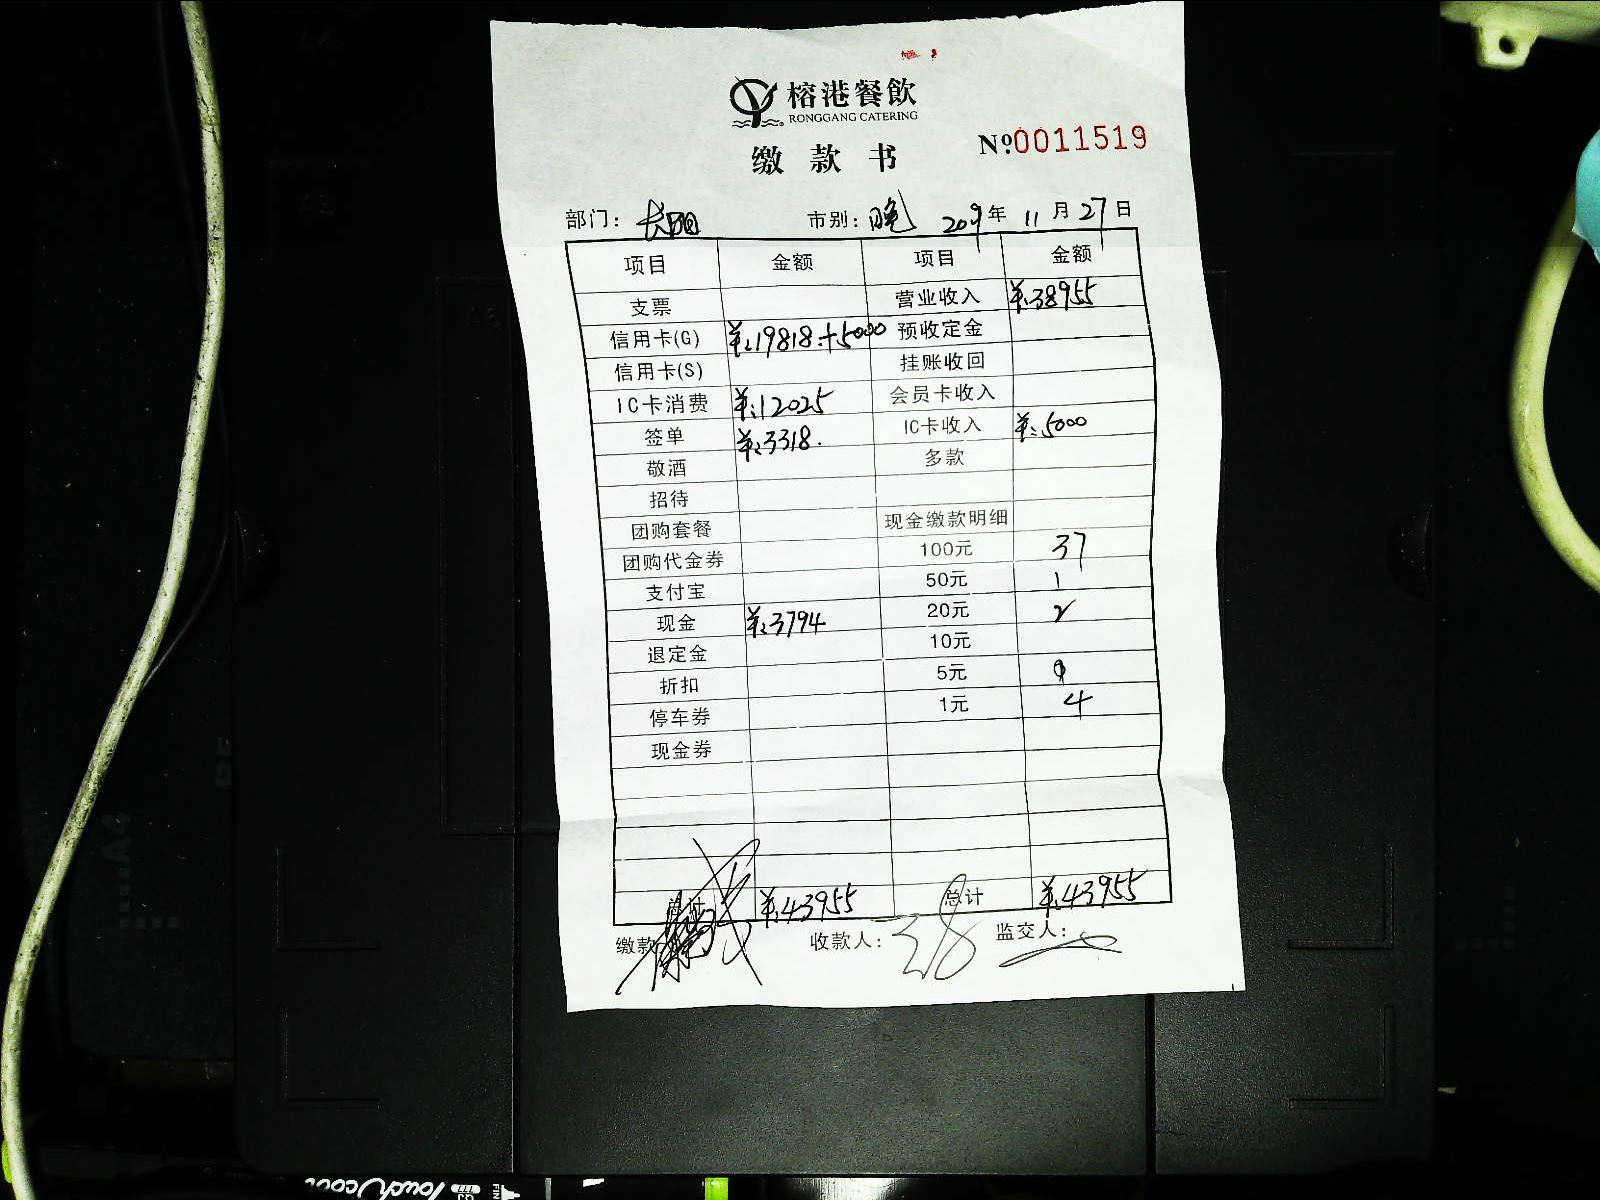 榕港餐飲
RONGGANG CATERING
№0011519
缴款书
部门：长阳 市别：晚 2019年11月27日
项目 金额 项目 金额
支票 营业收入 ¥:38955
信用卡(G) ¥:19818.+5000 预收定金
信用卡(S) 挂账收回
IC卡消费 ¥:12025 会员卡收入
签单 ¥:3318. IC卡收入 ¥:5000
敬酒 多款
招待
团购套餐 现金缴款明细
团购代金券 100元 37
支付宝 50元 1
现金 ¥:3794 20元 2
退定金 10元
折扣 5元
停车券 1元 4
现金券
总计 ¥:43955 总计 ¥:43955
缴款 收款人： 监交人：
Touch cool